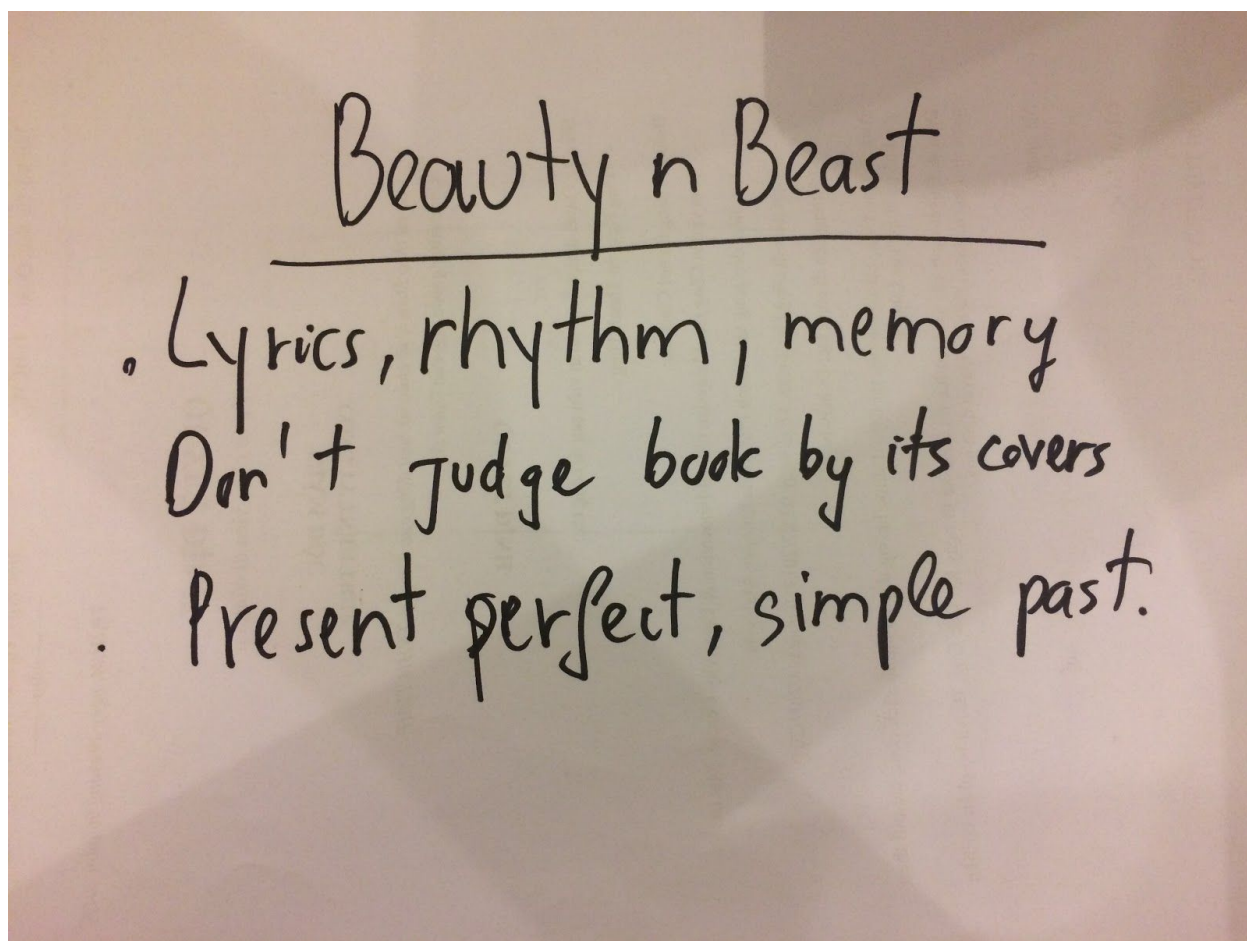 Beauty n Beast
. Lyrics, rhythm, memory
Don't Judge book by its covers
. Present perfect, simple past.